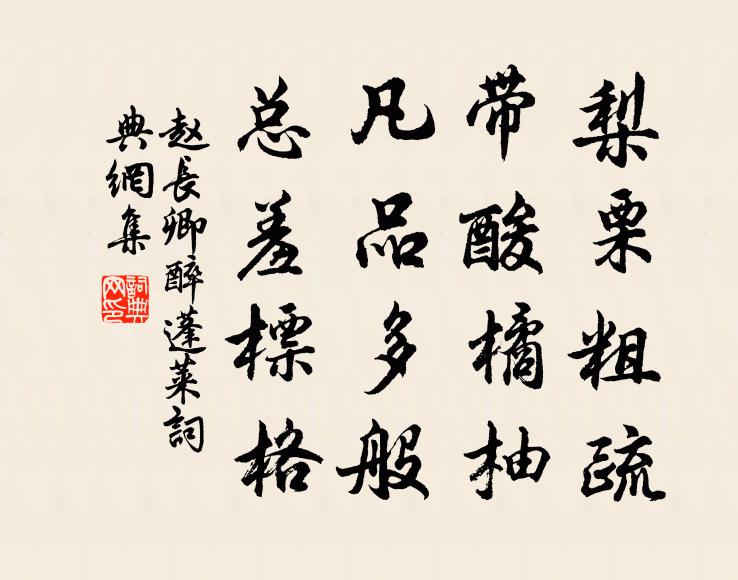 梨栗粗疏
带酸橘柚
凡品多般
总羞標格
赵長卿醉蓬莱詞
典網集
詞典
网印